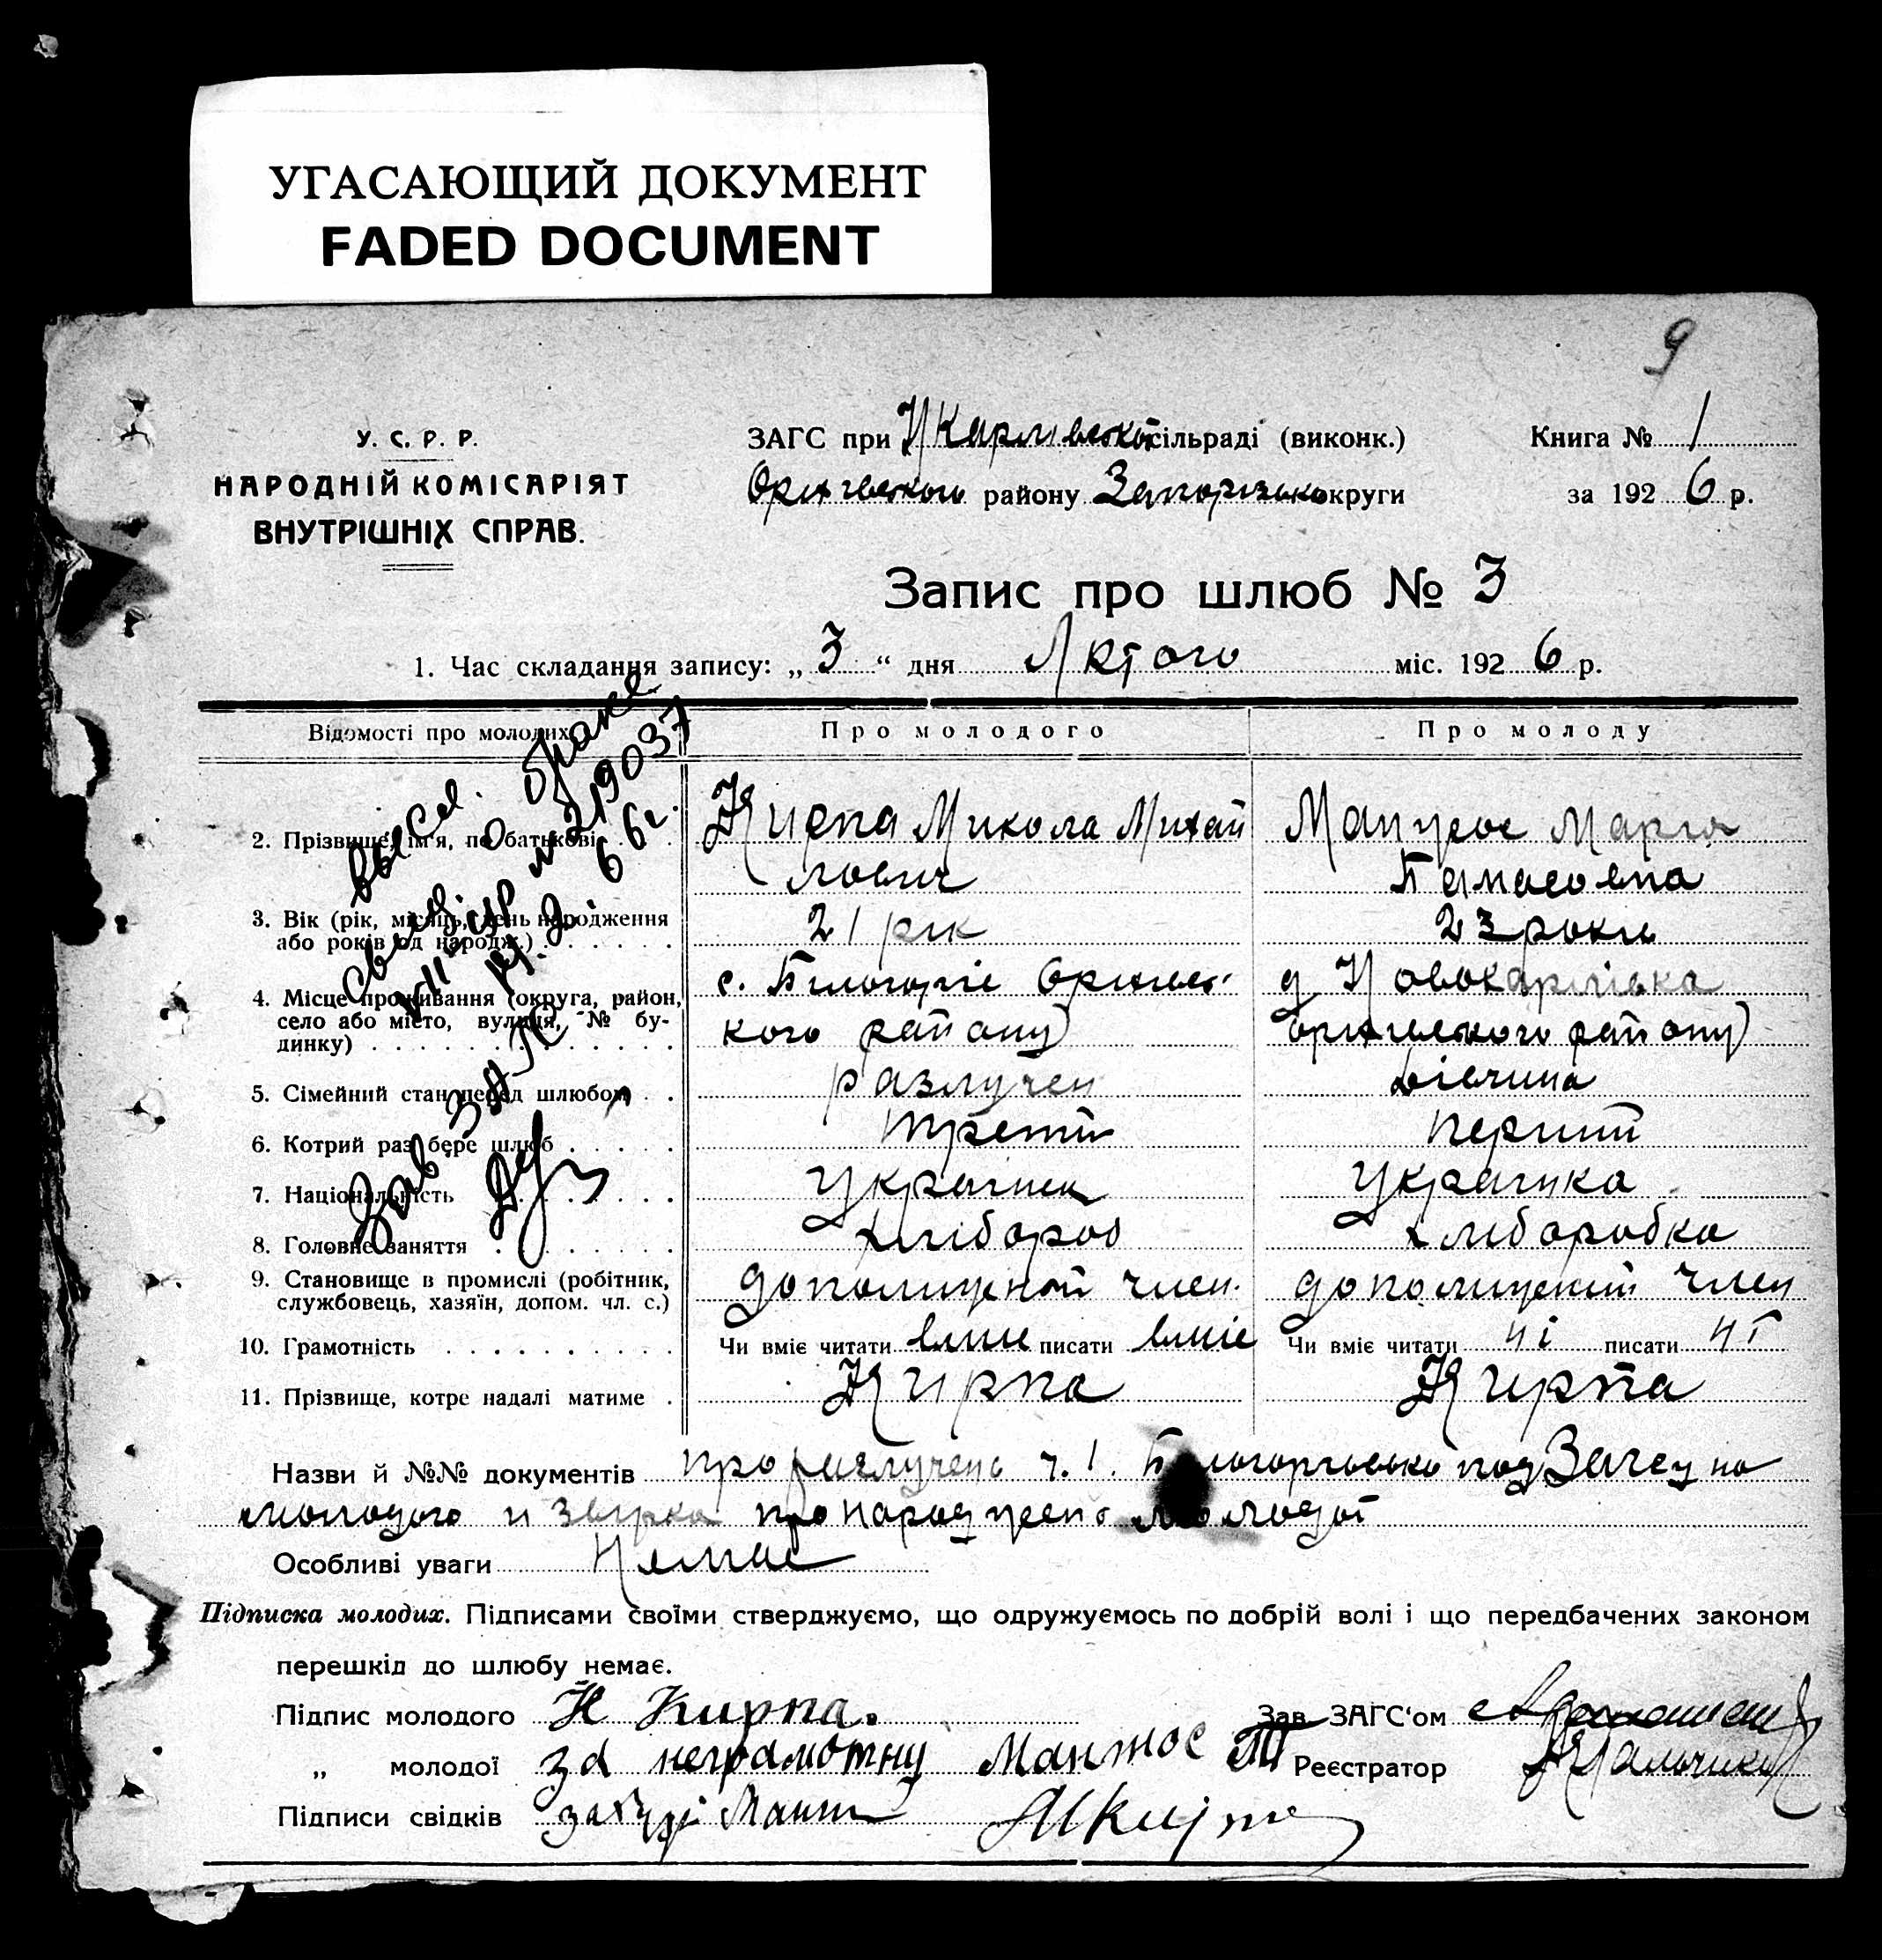 УГАСАЮЩИЙ ДОКУМЕНТ
FADED DOCUMENT
9
У. С. Р. Р.
НАРОДНІЙ КОМІСАРІЯТ
ВНУТРІШНІХ СПРАВ.
ЗАГС при Н Карлівської сільраді (виконк.)
Книга № 1
Оріхівського району Запорізько округи
за 1926 р.
Запис про шлюб № 3
1. Час складання запису: „ 3 “ дня Лютого міс. 1926 р.
Відомості про молодих
Про молодого
Про молоду
2. Прізвище, ім'я, по батькові
Кирпа Микола Михай
лович
Манжос Марія
Панасовна
3. Вік (рік, місяць, день народження
або років од народж.)
21 рік
23 роки
4. Місце проживання (округа, район,
село або місто, вулиця, № бу-
динку)
с. Білогоріє Оріхівсь-
кого району
д Новокарлівка
Оріхівського району
5. Сімейний стан перед шлюбом
разлучен
дівчина
6. Котрий раз бере шлюб
третій
перший
7. Національність
Українец
Українка
8. Головне заняття
хлібороб
хліборобка
9. Становище в промислі (робітник,
службовець, хазяїн, допом. чл. с.)
дополіжной член.
дополіжний член
10. Грамотність
Чи вміє читати вміє писати вміє
Чи вміє читати ні писати ні
11. Прізвище, котре надалі матиме
Кирпа
Кирпа
высл.
свид. о браке
VII-ЯР № 219037
66 г.
Зав ЗАГС
Назви й №№ документів про разлучень ч. 1. Білогорівсько под Загсу на
молодого и звірка про народження молодої
Особливі уваги Немає
Підписка молодих. Підписами своїми стверджуємо, що одружуємось по добрій волі і що передбачених законом
перешкід до шлюбу немає.
Підпис молодого Н Кирпа.
Зав. ЗАГС'ом
„ молодої за неграмотну Манжос
Реєстратор
Підписи свідків